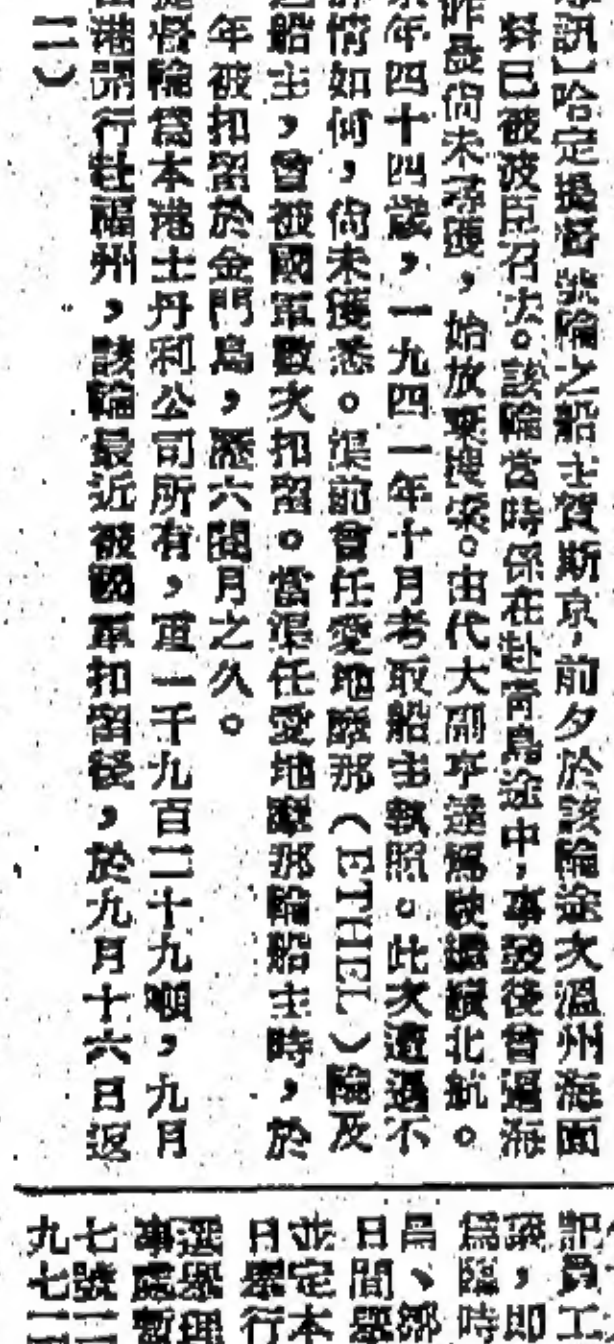 訊】哈定提督號輪之船主賀斯京,前夕於該輪途次溫州海面
料已被波臣召去。該輪當時係在赴青島途中,事發後曾過海
昨晨尚未尋獲,始放棄搜索。由代大副李達駕駛繼續北航。
年四十四歲,一九四一年十月考取船主執照。此次遭遇不
情如何,尚未獲悉。渠前曾任愛地醛那(ETHEL)輪及
船主,曾被國軍數次扣留。當渠任愛地醛那輪船主時,於
年被扣留於金門島,歷六閱月之久。
督輪為本港士丹利公司所有,重一千九百二十九噸,九月
港開行駐福州,該輪最近被國軍扣留後,於九月十六日返
二)
記員工
議,即
爲臨時
昌、鄒
日間舉
並定本
日舉行
選舉理
事處暫
七號二
九七一